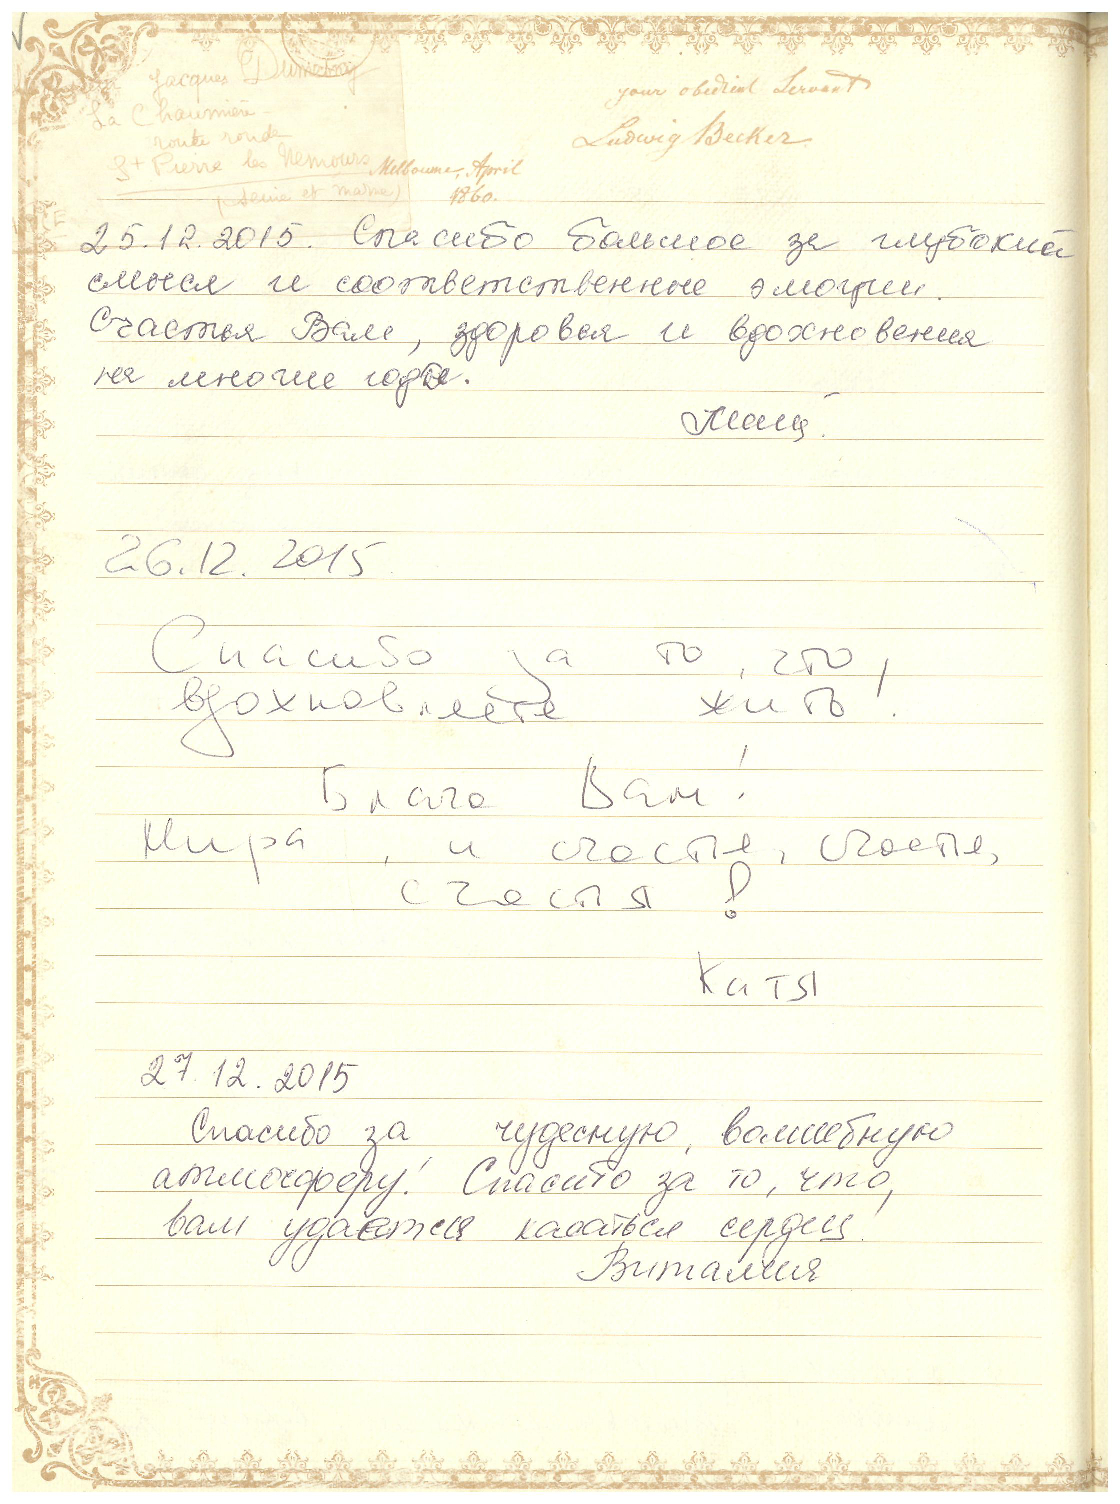 Jacques
La Chaumière
route ronde
St Pierre les Nemours
(Seine et Marne)
your obedient Servant
Ludwig Becker.
Melbourne, April
1860.
25.12.2015. Спасибо большое за глубокий
смысл и соответственные эмоции.
Счастья Вам, здоровья и вдохновения
на многие годы.
26.12.2015
Спасибо за то, что,
вдохновляете жить!
Блага Вам!
Мира, и счастья, счастья,
счастья!
Катя
27.12.2015
Спасибо за чудесную, волшебную
атмосферу! Спасибо за то, что,
вам удаётся касаться сердец!
Виталия